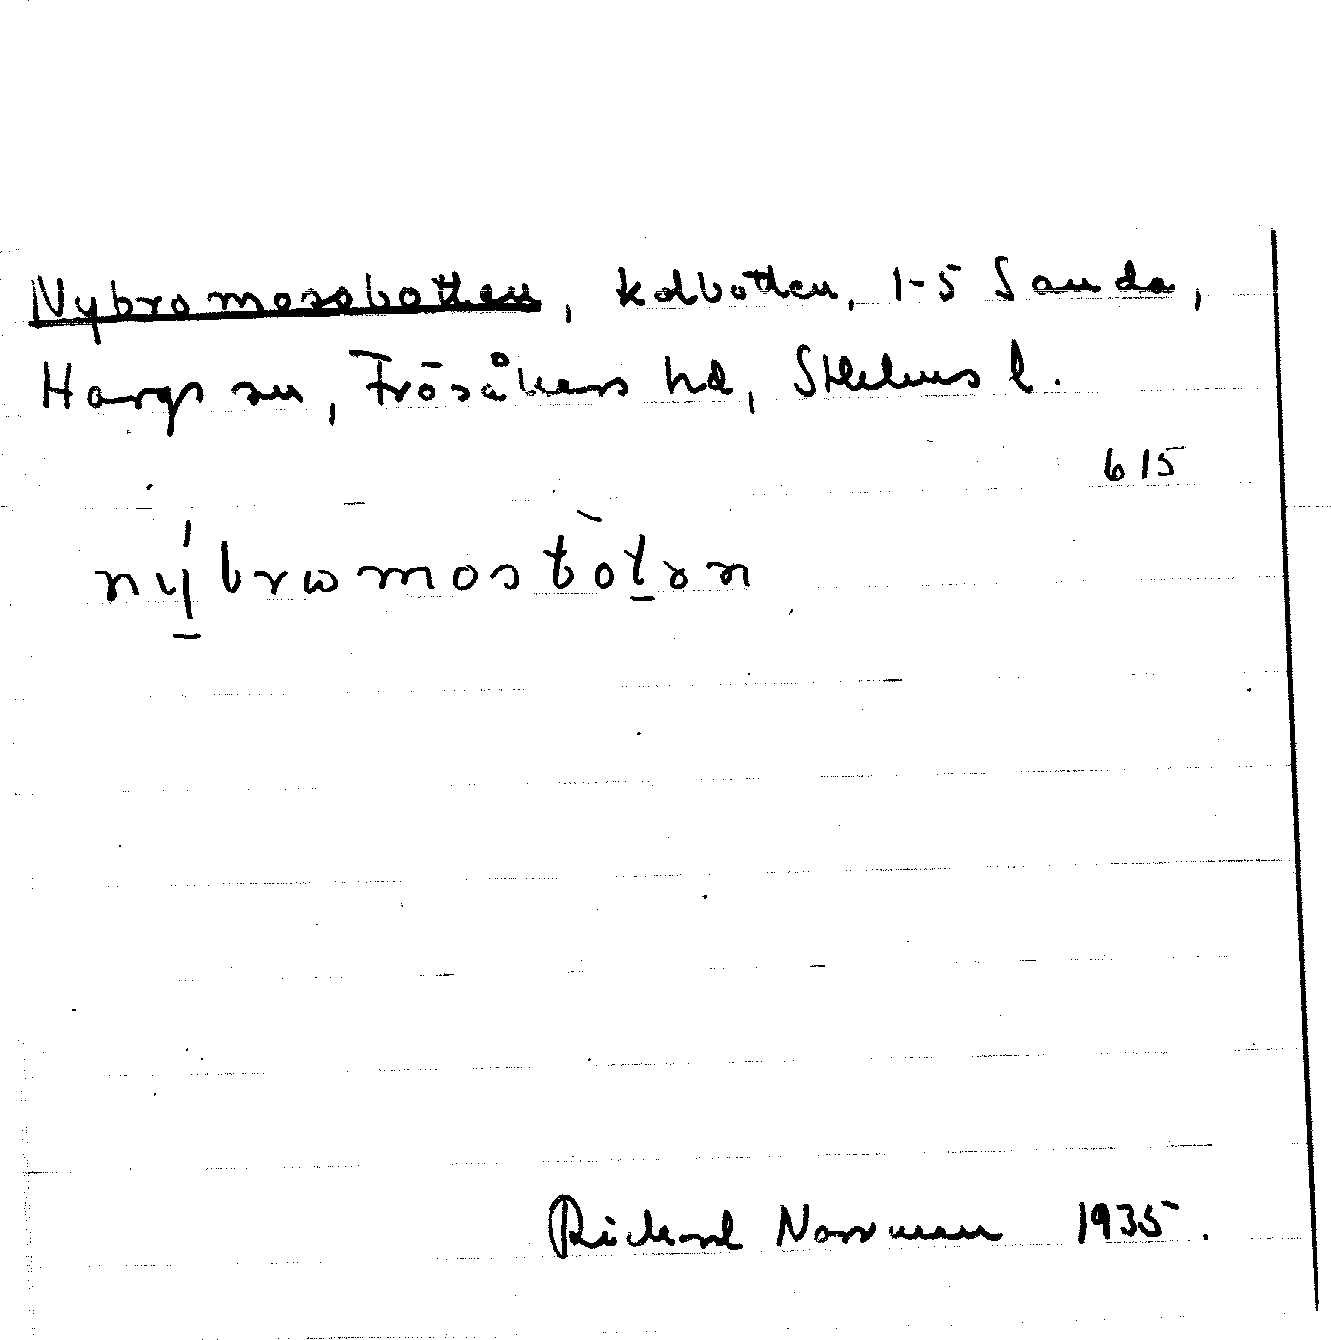 Nybromossbotten, kolbotten, 1-5 Sanda,
Hargs sn, Frösåkers hd, Sthlms l.
615
nýbrωmosbòtən
Rickard Norrman 1935.